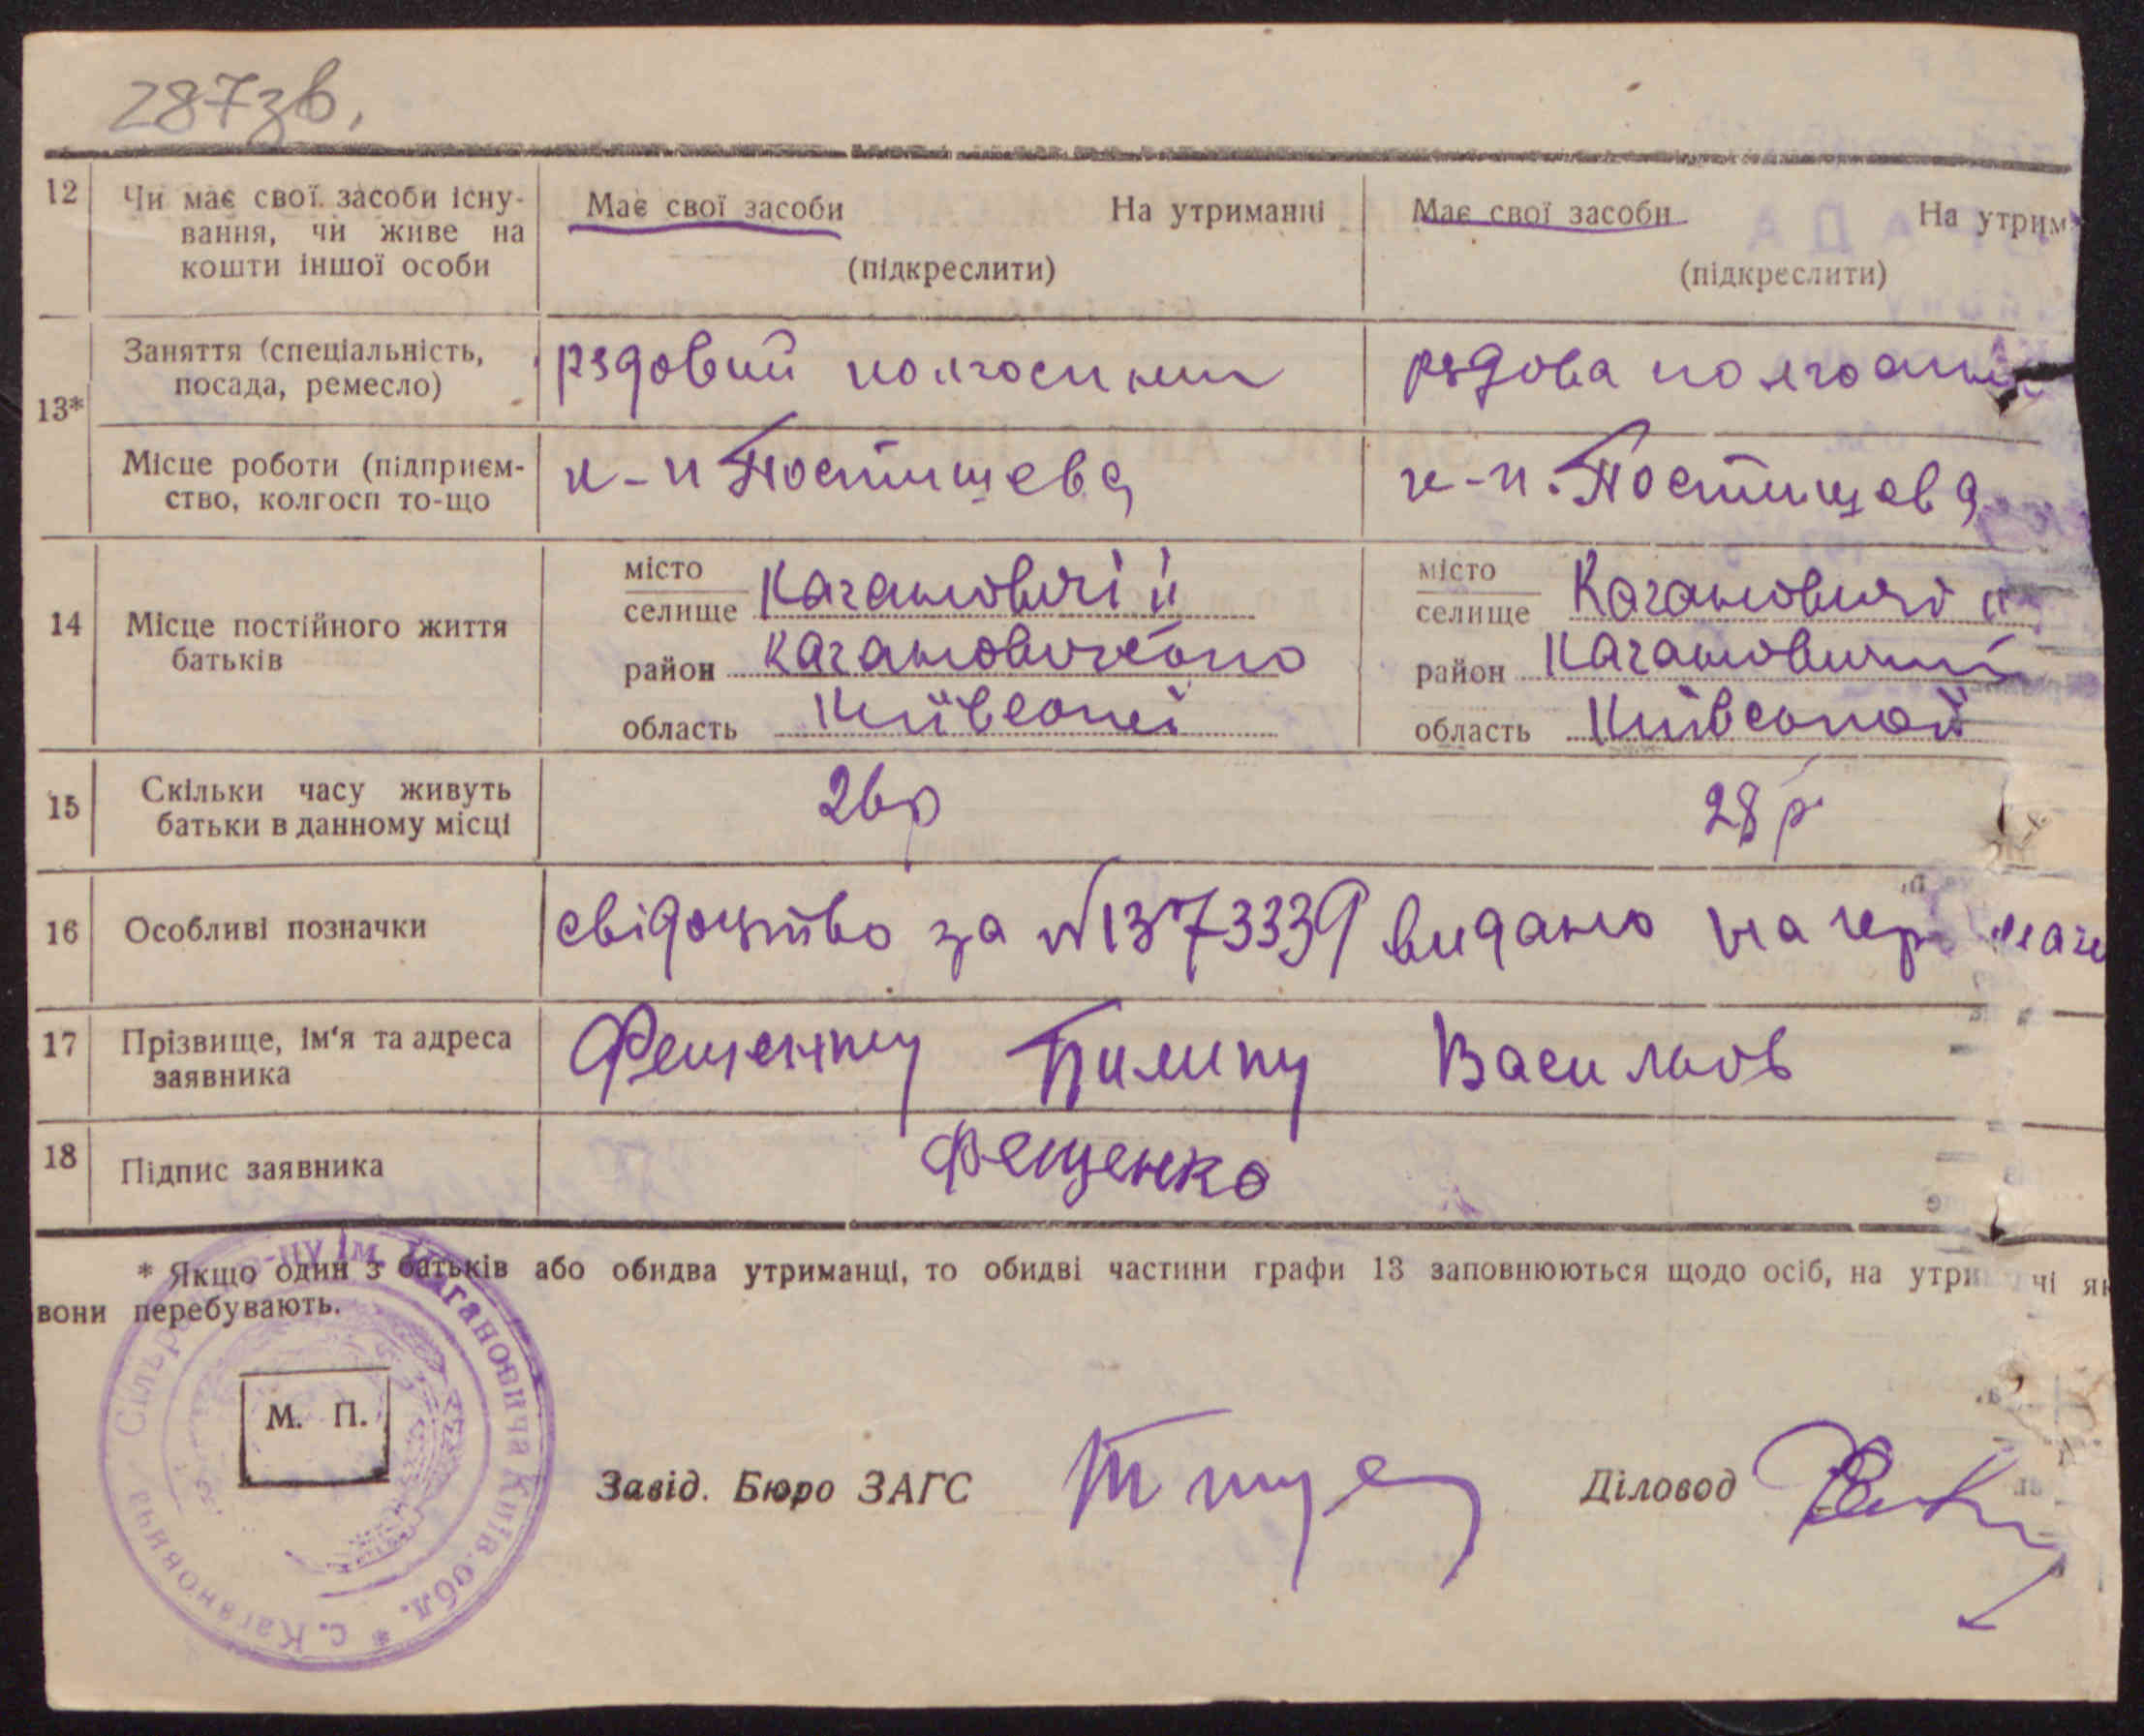 287зв.
12 Чи має свої засоби існу-
вання, чи живе на
кошти іншої особи
Має свої засоби На утриманні
(підкреслити)
Має свої засоби На утрим
(підкреслити)
13*
Заняття (спеціальність,
посада, ремесло)
рядовий колгоспник
рядова колгоспн
Місце роботи (підприєм-
ство, колгосп то-що
к-п Постишева
к-п. Постишева
14 Місце постійного життя
батьків
місто
селище Кагановичі ІІ
район Кагановичського
область Київської
місто
селище Кагановичі ІІ
район
область Київської
15 Скільки часу живуть
батьки в данному місці
26р
28р
16 Особливі позначки
свідоцтво за №1373339 видано на
17 Прізвище, ім'я та адреса
заявника
Фещенку Пилипу Васильов
18 Підпис заявника
Фещенко
* Якщо один з батьків або обидва утриманці, то обидві частини графи 13 заповнюються щодо осіб, на утри чі як
вони перебувають.
Сільра -ну ім. Кагановича Київ. обл. * с. Кагановича
М. П.
Завід. Бюро ЗАГС
Діловод